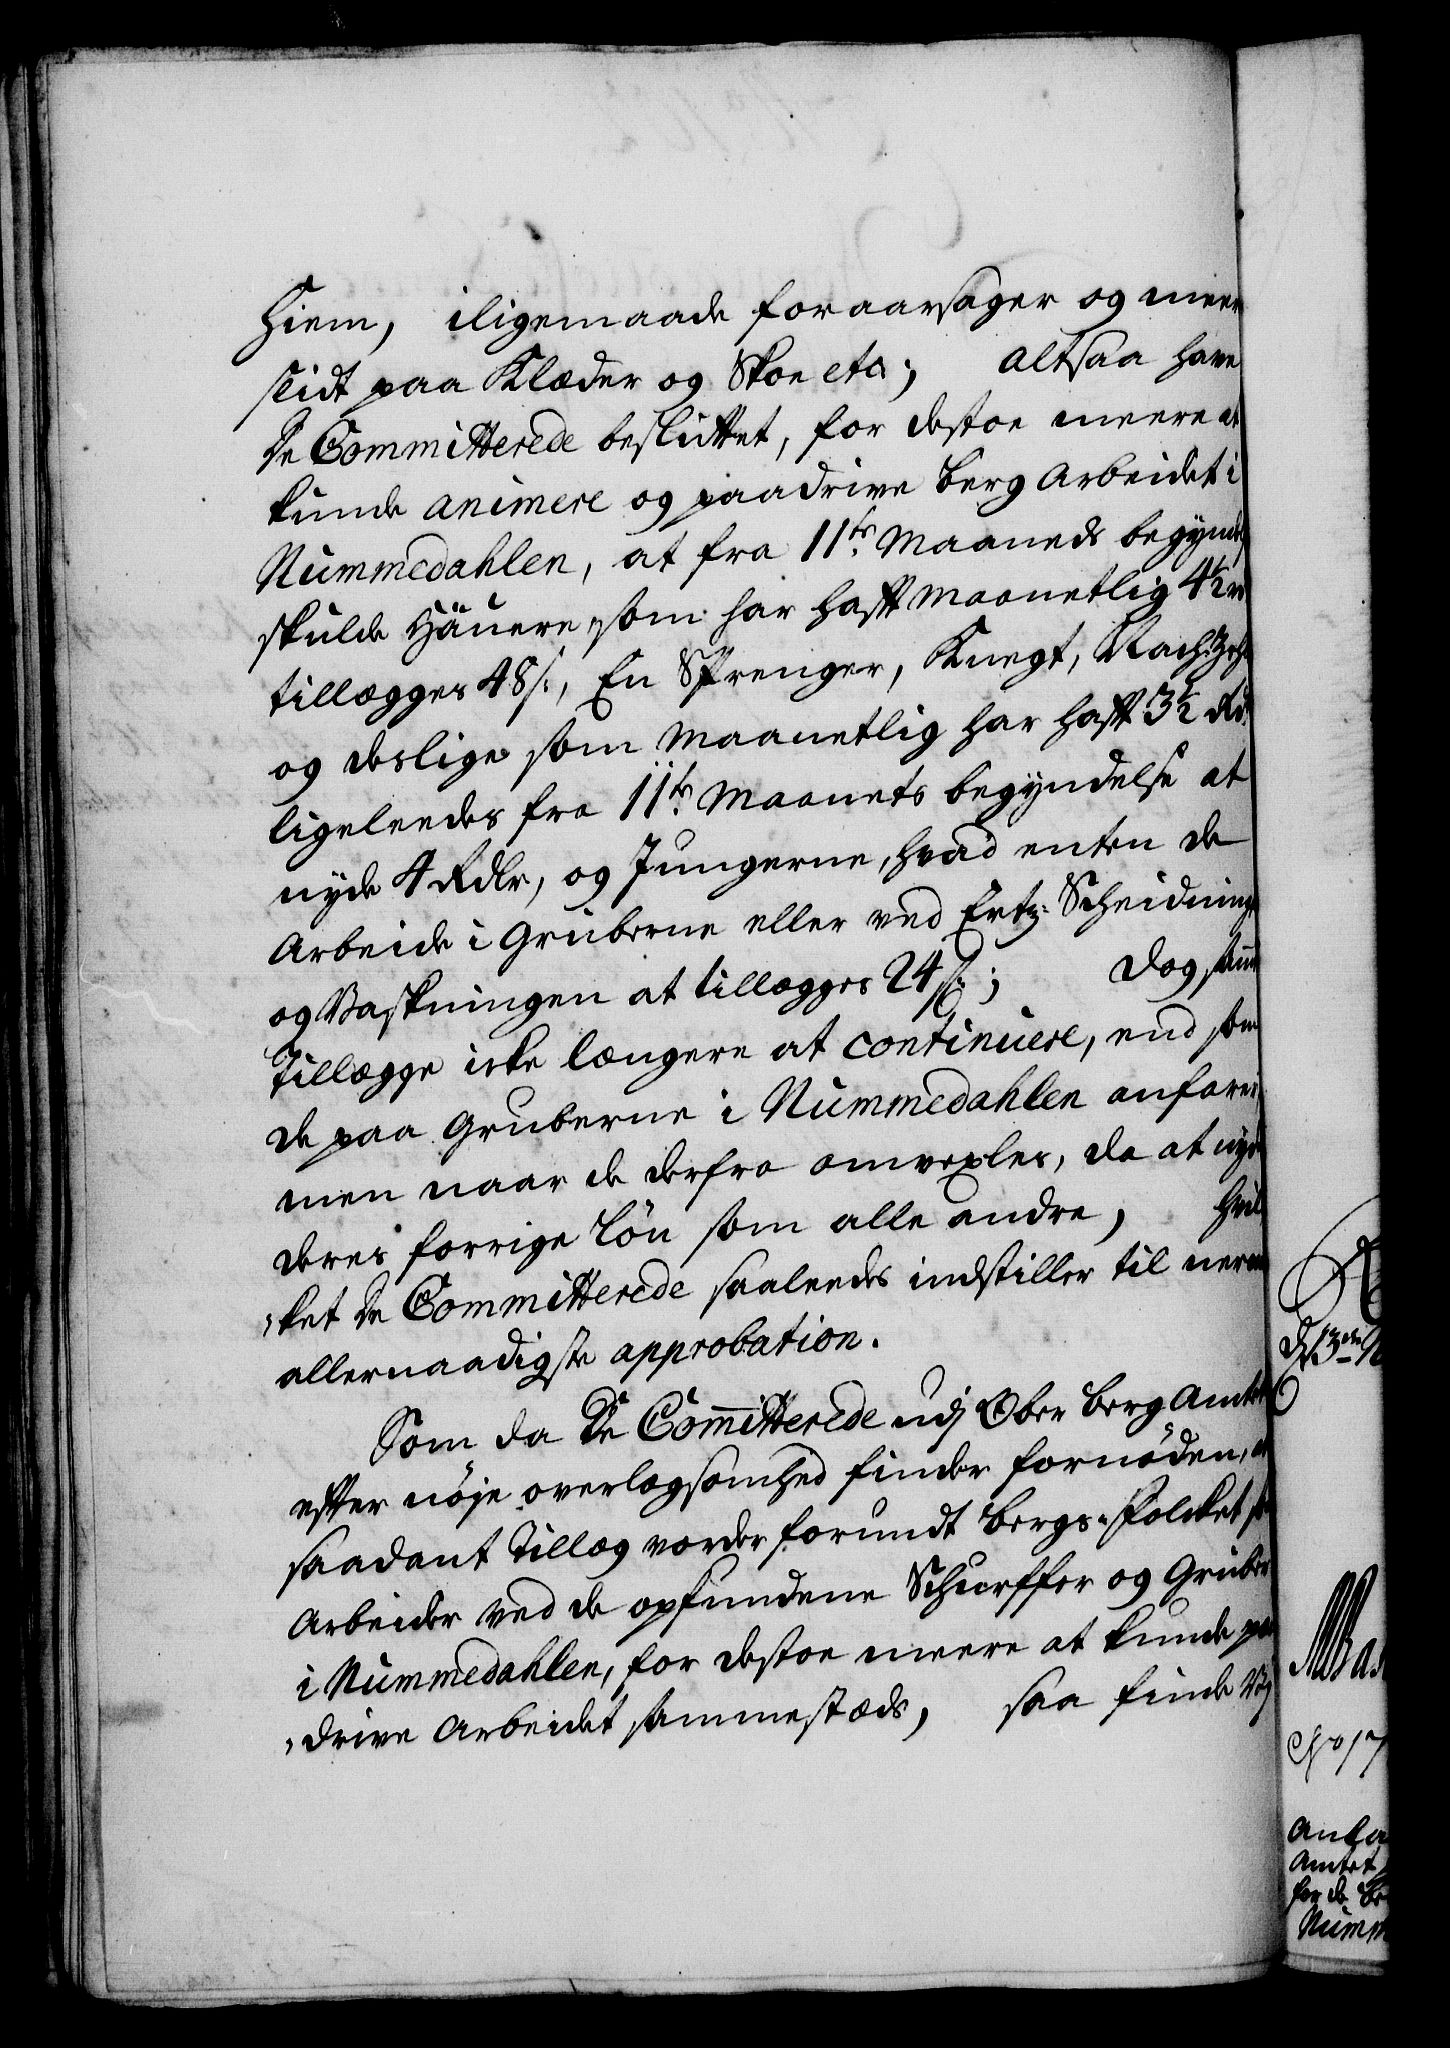 Hiem, iligemaade foraarsager og meere
slidt paa Klæder og Skoe etc; altsaa have
De Committerede besluttet, for destoe meere at
kunde animere og paadrive Berg Arbeidet i
Nummedahlen, at fra 11te Maaneds begyndelse
skulde Häuere, som har hafft Maanetlig 4½
tillægges 48 s:, En Sprenger, Knegt,
og deslige som Maanetlig har hafft 3½ Rd.
ligeleedes fra 11te Maanets begyndelse at
nyde 4 Rdlr, og Jungerne, hvad enten de
Arbeide i Gruberne eller ved Ertz-Scheidningen
og Vaskningen at tillægges 24 s:; Dog samme
Tillægge icke længere at continuere, end som
de paa Gruberne i Nummedahlen anfarer,
men naar de derfra omvexles, da at nyde
deres forrige Løn som alle andre, hvil-
ket De Committerede saaleedes indstiller til
allernaadigste approbation.
Som da De Committerede udj Ober Berg Amtet
efter nøje overlægsomhed finder fornøden, at
saadant Tillæg vorder forundt Bergs-Folcket som
Arbeider ved de opfundene Schurffer og Gruber
i Nummedahlen, for destoe meere at kunde paa-
drive Arbeidet sammestæds, saa finde Vi
d 13de
No 17
Amtet
for de
Numm